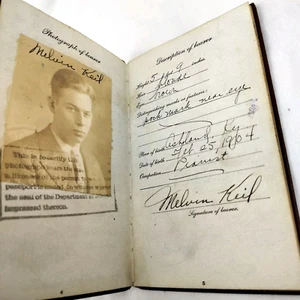 Photograph of bearer
Melvin Keil
This is to certify that
photograph
the seal of the Department
impressed thereon.
Description of bearer
Height 5 feet 9 inches
Hair blonde
Distinguishing marks or features:
pock mark near eye
Place of birth Ashland, Ky
Date of birth Feb 25, 1904
Occupation Pianist
Melvin Keil
Signature of bearer